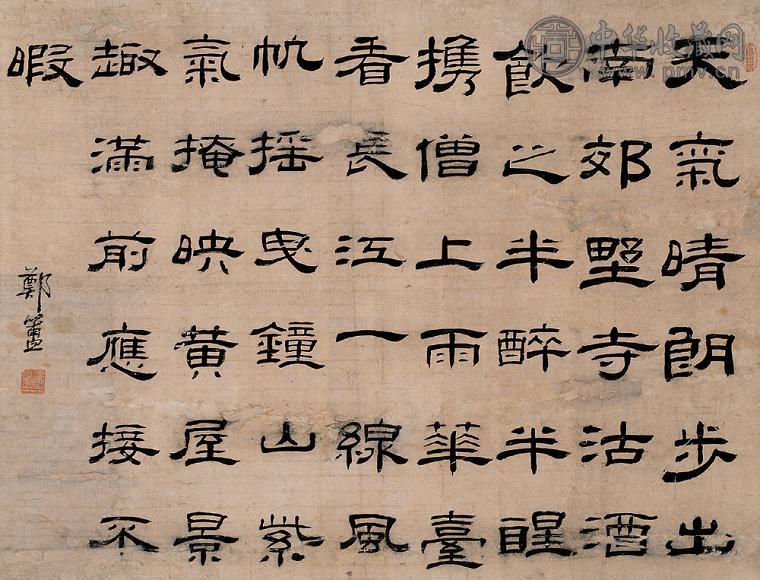 天氣晴朗步出
南郊墅寺沽酒
飲之半醉半醒
攜僧上雨華臺
看長江一線風
帆搖曳鐘山紫
氣掩映黃屋景
趣滿前應接不
暇
鄭簠
中华收藏网
www.pmv.cn